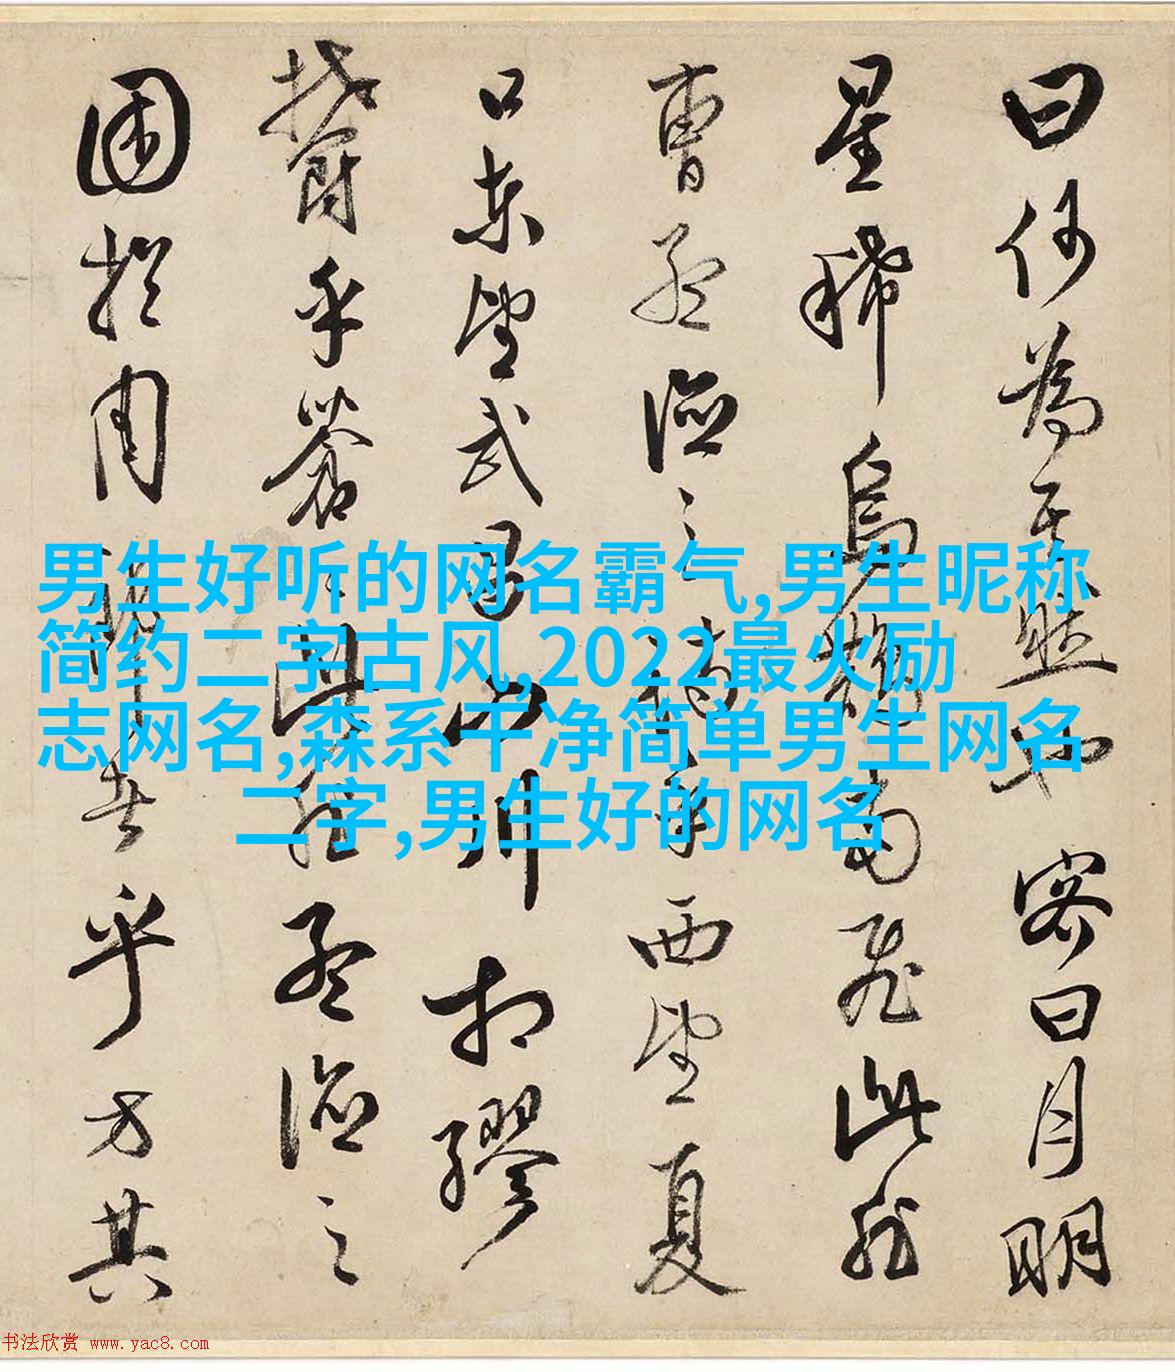 曰何為其然也客曰月明
星稀烏鵲南飛此非
曹孟德之詩乎西望夏
口東望武昌山川相繆
鬱乎蒼〻此非孟德之
困於周郎者乎方其
男生好听的网名霸气,男生昵称
简约二字古风,2022最火励
志网名,森系干净简单男生网名
二字,男生好的网名
书法欣赏 www.yac8.com